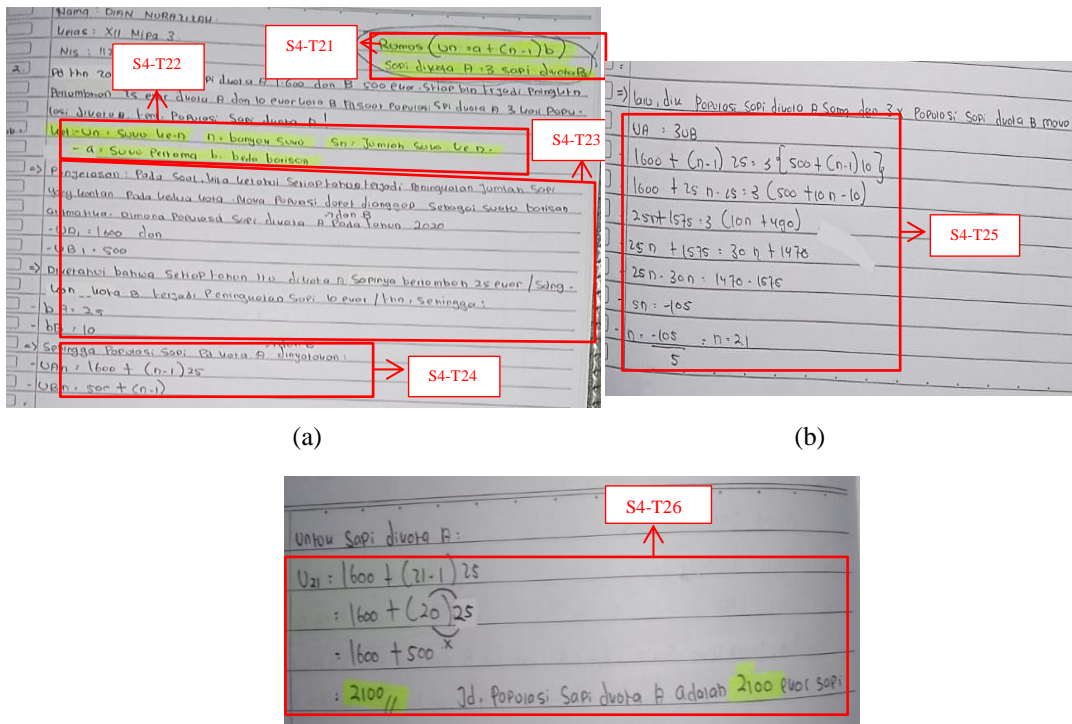 Nama : DIAN NURAZIZAH
Kelas : XII Mipa 3
Nis : 112
S4-T21
Rumos (Un = a + (n-1) b)
Sapi dikota A = 3 sapi dikota B
S4-T22
2.
Pd thn 20 sapi dikota A 1.600 dan B 500 ekor. Stiap bln terjadi peningktn
Pertumbuhan 25 ekor dikota A dan 10 ekor kota B. Pd saat populasi spi dikota A 3 kali popu-
lasi dikota B. tent. Populasi sapi dikota A !
S4-T23
- Un = Suku ke-n n = banyak suku Sn = Jumlah suku ke n.
- a = Suku pertama b = beda barisan
=> Penjelasan : Pada soal, kita ketahui setiap tahun terjadi peningkatan Jumlah sapi
yang konstan pada kedua kota. Maka populasi dapat dianggap sebagai suatu barisan
aritmatika. Dimana populasi sapi dikota A dan B pada tahun 2020
- UA1 = 1600 dan
- UB1 = 500
=> Diketahui bahwa setiap tahun itu dikota A sapinya bertambah 25 ekor / sdng-
kan kota B terjadi peningkatan sapi 10 ekor / thn, sehingga :
- bA = 25
- bB = 10
=> Sehingga populasi sapi pd kota A dan B dinyatakan :
S4-T24
- UAn = 1600 + (n-1) 25
- UBn = 500 + (n-1)
(a)
=) lalu, dik populasi sapi dikota A sama dgn 3x populasi sapi dikota B maka
UA = 3UB
1600 + (n-1) 25 = 3 {500 + (n-1) 10}
1600 + 25 n - 25 = 3 (500 + 10 n - 10)
S4-T25
25n + 1575 = 3 (10n + 490)
25 n + 1575 = 30 n + 1470
25n - 30n = 1470 - 1575
- 5n = -105
n = -105 / 5 = n = 21
(b)
S4-T26
Untuk sapi dikota A :
U21 = 1600 + (21-1) 25
= 1600 + (20) 25
x
= 1600 + 500
= 2100 // Jd. Populasi sapi dikota A adalah 2100 ekor sapi